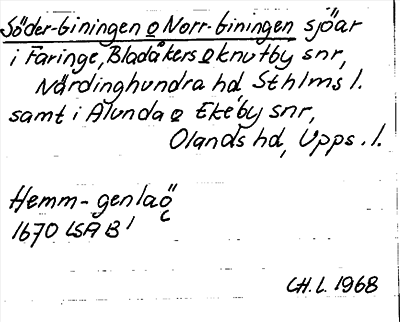 Söder-biningen o Norr-biningen sjöar
i Faringe, Bladåkers o Knutby snr,
Närdinghundra hd, Sthlms l.
samt i Alunda o Ekeby snr,
Olands hd, Upps. l.
Hemm-genlaö
1670 LSA B1
CH. L. 1968